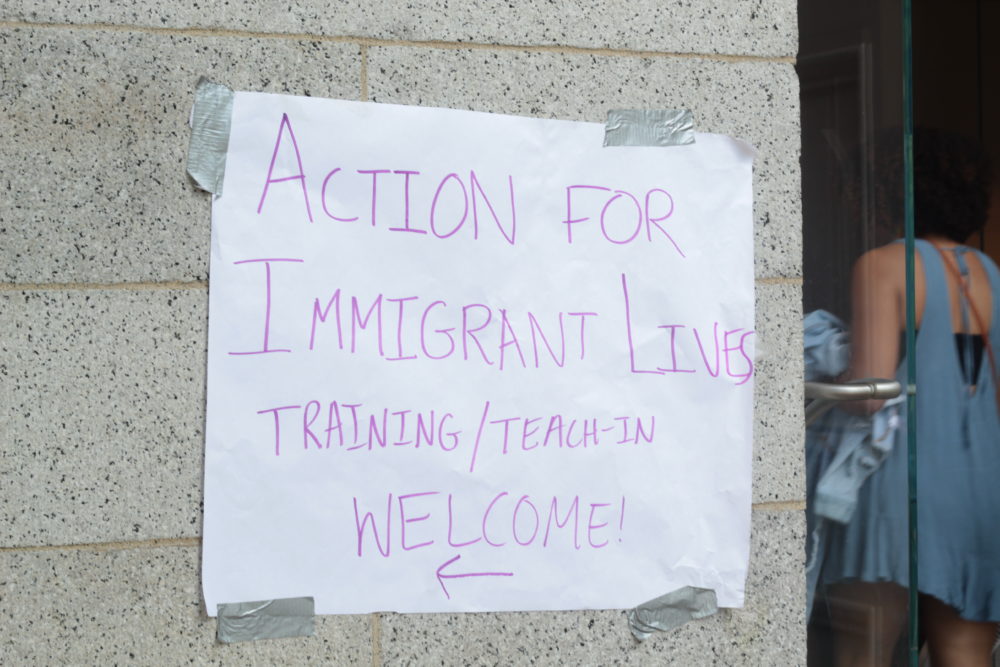 ACTION FOR
IMMIGRANT LIVES
TRAINING/TEACH-IN
WELCOME!
←